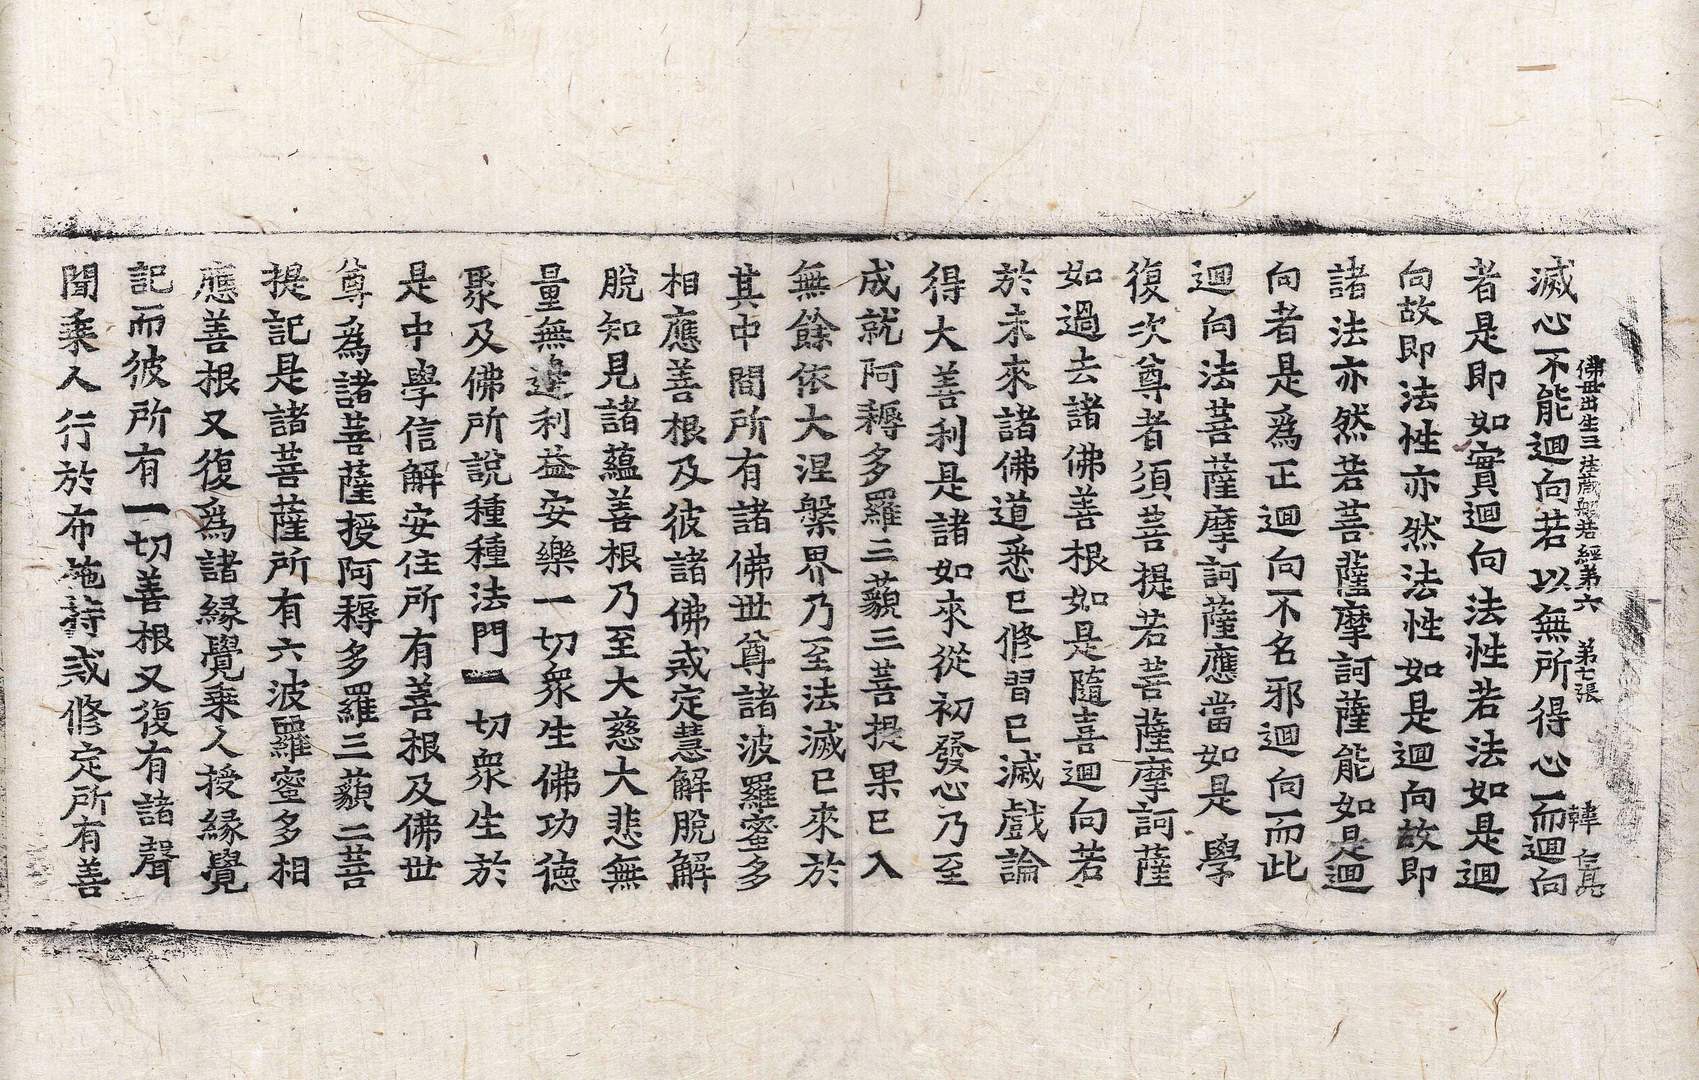 佛母出生三法藏般若經第六 第七張 韓
滅心不能迴向若以無所得心而迴向
者是即如實迴向法性若法如是迴
向故即法性亦然法性如是迴向故即
諸法亦然若菩薩摩訶薩能如是迴
向者是爲正迴向不名邪迴向而此
迴向法菩薩摩訶薩應當如是學
復次尊者須菩提若菩薩摩訶薩
如過去諸佛善根如是隨喜迴向若
於未來諸佛道悉已修習已滅戲論
得大善利是諸如來從初發心乃至
成就阿耨多羅三藐三菩提果已入
無餘依大涅槃界乃至法滅已來於
其中間所有諸佛世尊諸波羅蜜多
相應善根及彼諸佛戒定慧解脫解
脫知見諸蘊善根乃至大慈大悲無
量無邊利益安樂一切衆生佛功德
聚及佛所說種種法門一切衆生於
是中學信解安住所有善根及佛世
尊爲諸菩薩授阿耨多羅三藐三菩
提記是諸菩薩所有六波羅蜜多相
應善根又復爲諸緣覺乘人授緣覺
記而彼所有一切善根又復有諸聲
聞乘人行於布施持戒修定所有善